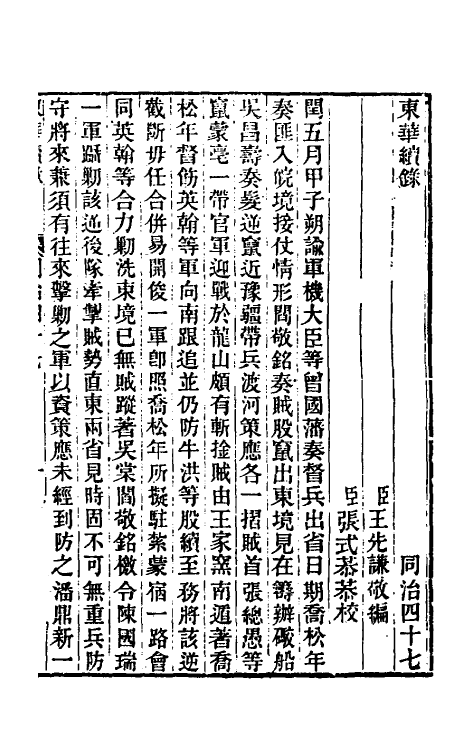 東華續錄 同治四十七
臣王先謙敬編
臣張式恭恭校
閏五月甲子朔諭軍機大臣等曾國藩奏督兵出省日期喬松年
奏匪入皖境接仗情形閻敬銘奏賊股竄出東境見在籌辦礮船
吳昌壽奏髮逆竄近豫疆帶兵渡河策應各一摺賊首張總愚等
竄蒙亳一帶官軍迎戰於龍山頗有斬捦賊由王家窯南遁著喬
松年督飭英翰等軍向南跟追並仍防牛洪等股續至務將該逆
截斷毋任合併易開俊一軍卽照喬松年所擬駐紮蒙宿一路會
同英翰等合力勦洗東境已無賊蹤著吳棠閻敬銘檄令陳國瑞
一軍躡勦該逆後隊牽掣賊勢直東兩省見時固不可無重兵防
守將來兼須有往來擊勦之軍以資策應未經到防之潘鼎新一